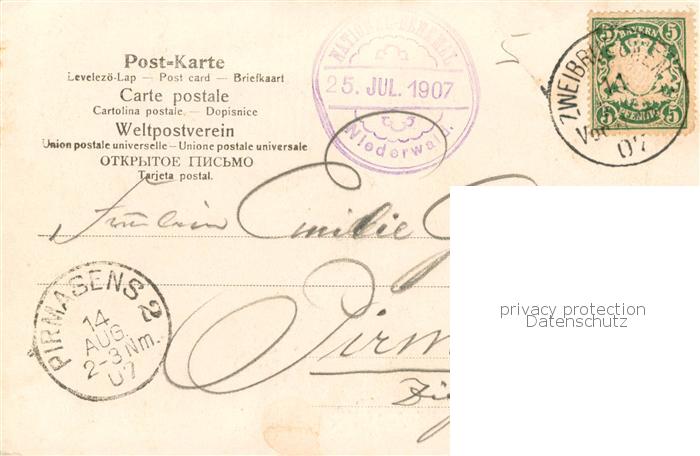 Post-Karte
Levelezö-Lap — Post card — Briefkaart
Carte postale
Cartolina postale. — Dopisnice
Weltpostverein
Union postale universelle — Unione postale universale
ОТКРЫТОЕ ПИСЬМО
Tarjeta postal.
NATIONAL-DENKMAL
25. JUL. 1907
Niederwald.
BAYERN
5 5
5 5
PFENNIG
ZWEIBRÜ
07
Fräulein Emilie
Pirm
PIRMASENS 2
14
AUG.
2-3 Nm.
07
privacy protection
Datenschutz